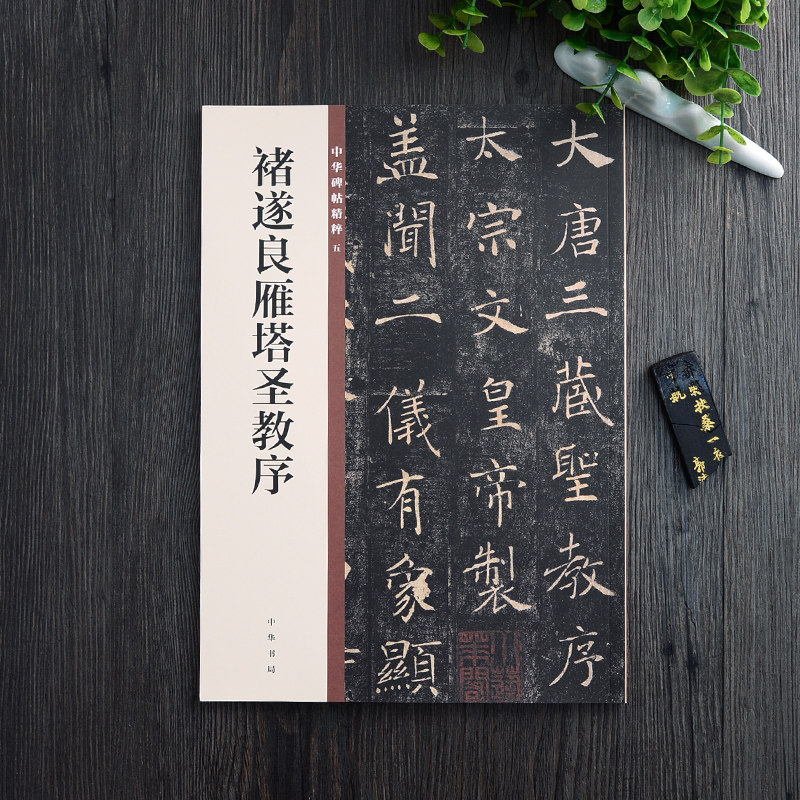 褚遂良雁塔圣教序
中华碑帖精粹 五
中华书局
大唐三蔵聖教序
太宗文皇帝製
盖聞二儀有象顯